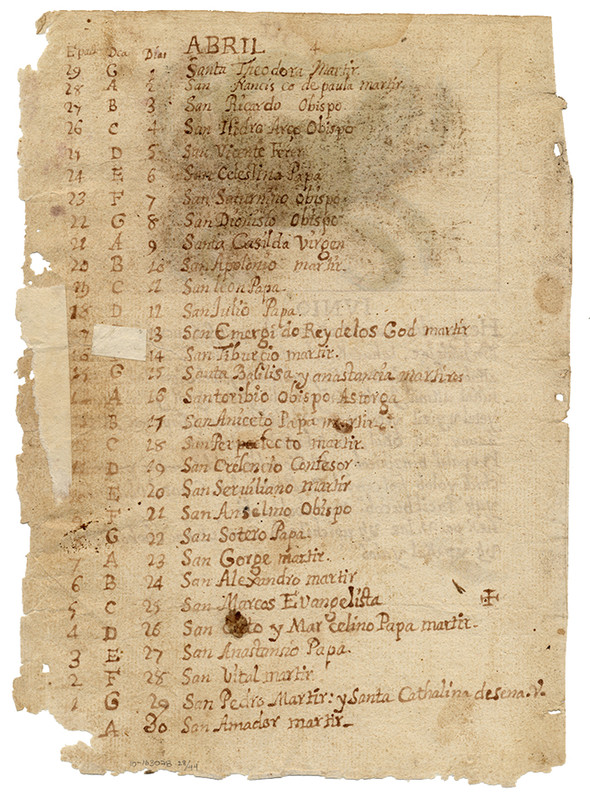 Epac Dca Dias ABRIL 4
29 G 1 Santa Theodora Martir
28 A 2 San Francis co de paula martir.
27 B 3 San Ricardo Obispo
26 C 4 San Isidro Arce Obispo
21 D 5 San Vicente Feter
24 E 6 San Celestino Papa
23 F 7 San Saturnino Obispo
22 G 8 San Dionisio Obispo
21 A 9 Santa Casilda virgen
20 B 10 San Apolonio martir.
19 C 11 San leon Papa.
18 D 12 San Julio Papa.
13 San Emergi do Rey de los God martir
14 San Tiburcio martir.
G 15 Santa Basilisa y anastancia martires
A 16 Santoribio Obispo Astorga
B 17 San Aniceto Papa martir.
C 18 San Perpefecto martir.
D 19 San Crelencio Confesor
E 20 San Serviliano martir
F 21 San Anselmo Obispo
G 22 San Sotero Papa.
7 A 23 San Gorge martir.
6 B 24 San Alexandro martir
5 C 25 San Marcos Evangelista
4 D 26 San y Marcelino Papa martir.
3 E 27 San Anastansio Papa.
2 F 28 San Vital martir
1 G 29 San Pedro Martir: y Santa Cathalina de sena. V.
A 30 San Amador martir